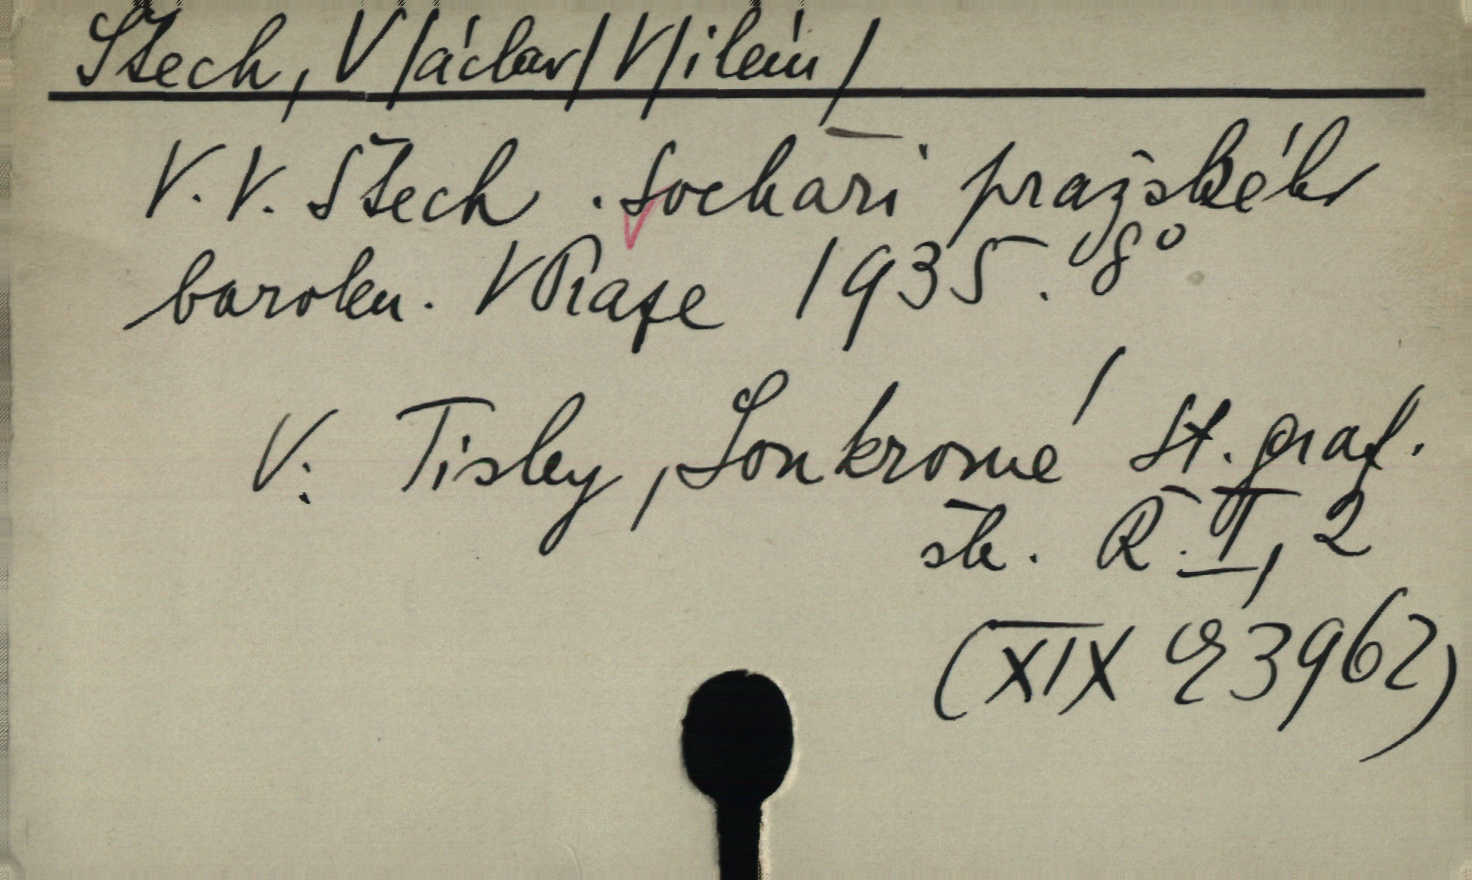 Štech, V/áclav/ V/ilém/
V. V. Štech. Sochaři pražského
baroku. V Praze 1935. 8°
V: Tisky, Soukromé St. graf.
šk. Ř. II, 2
(XIX G 3962)